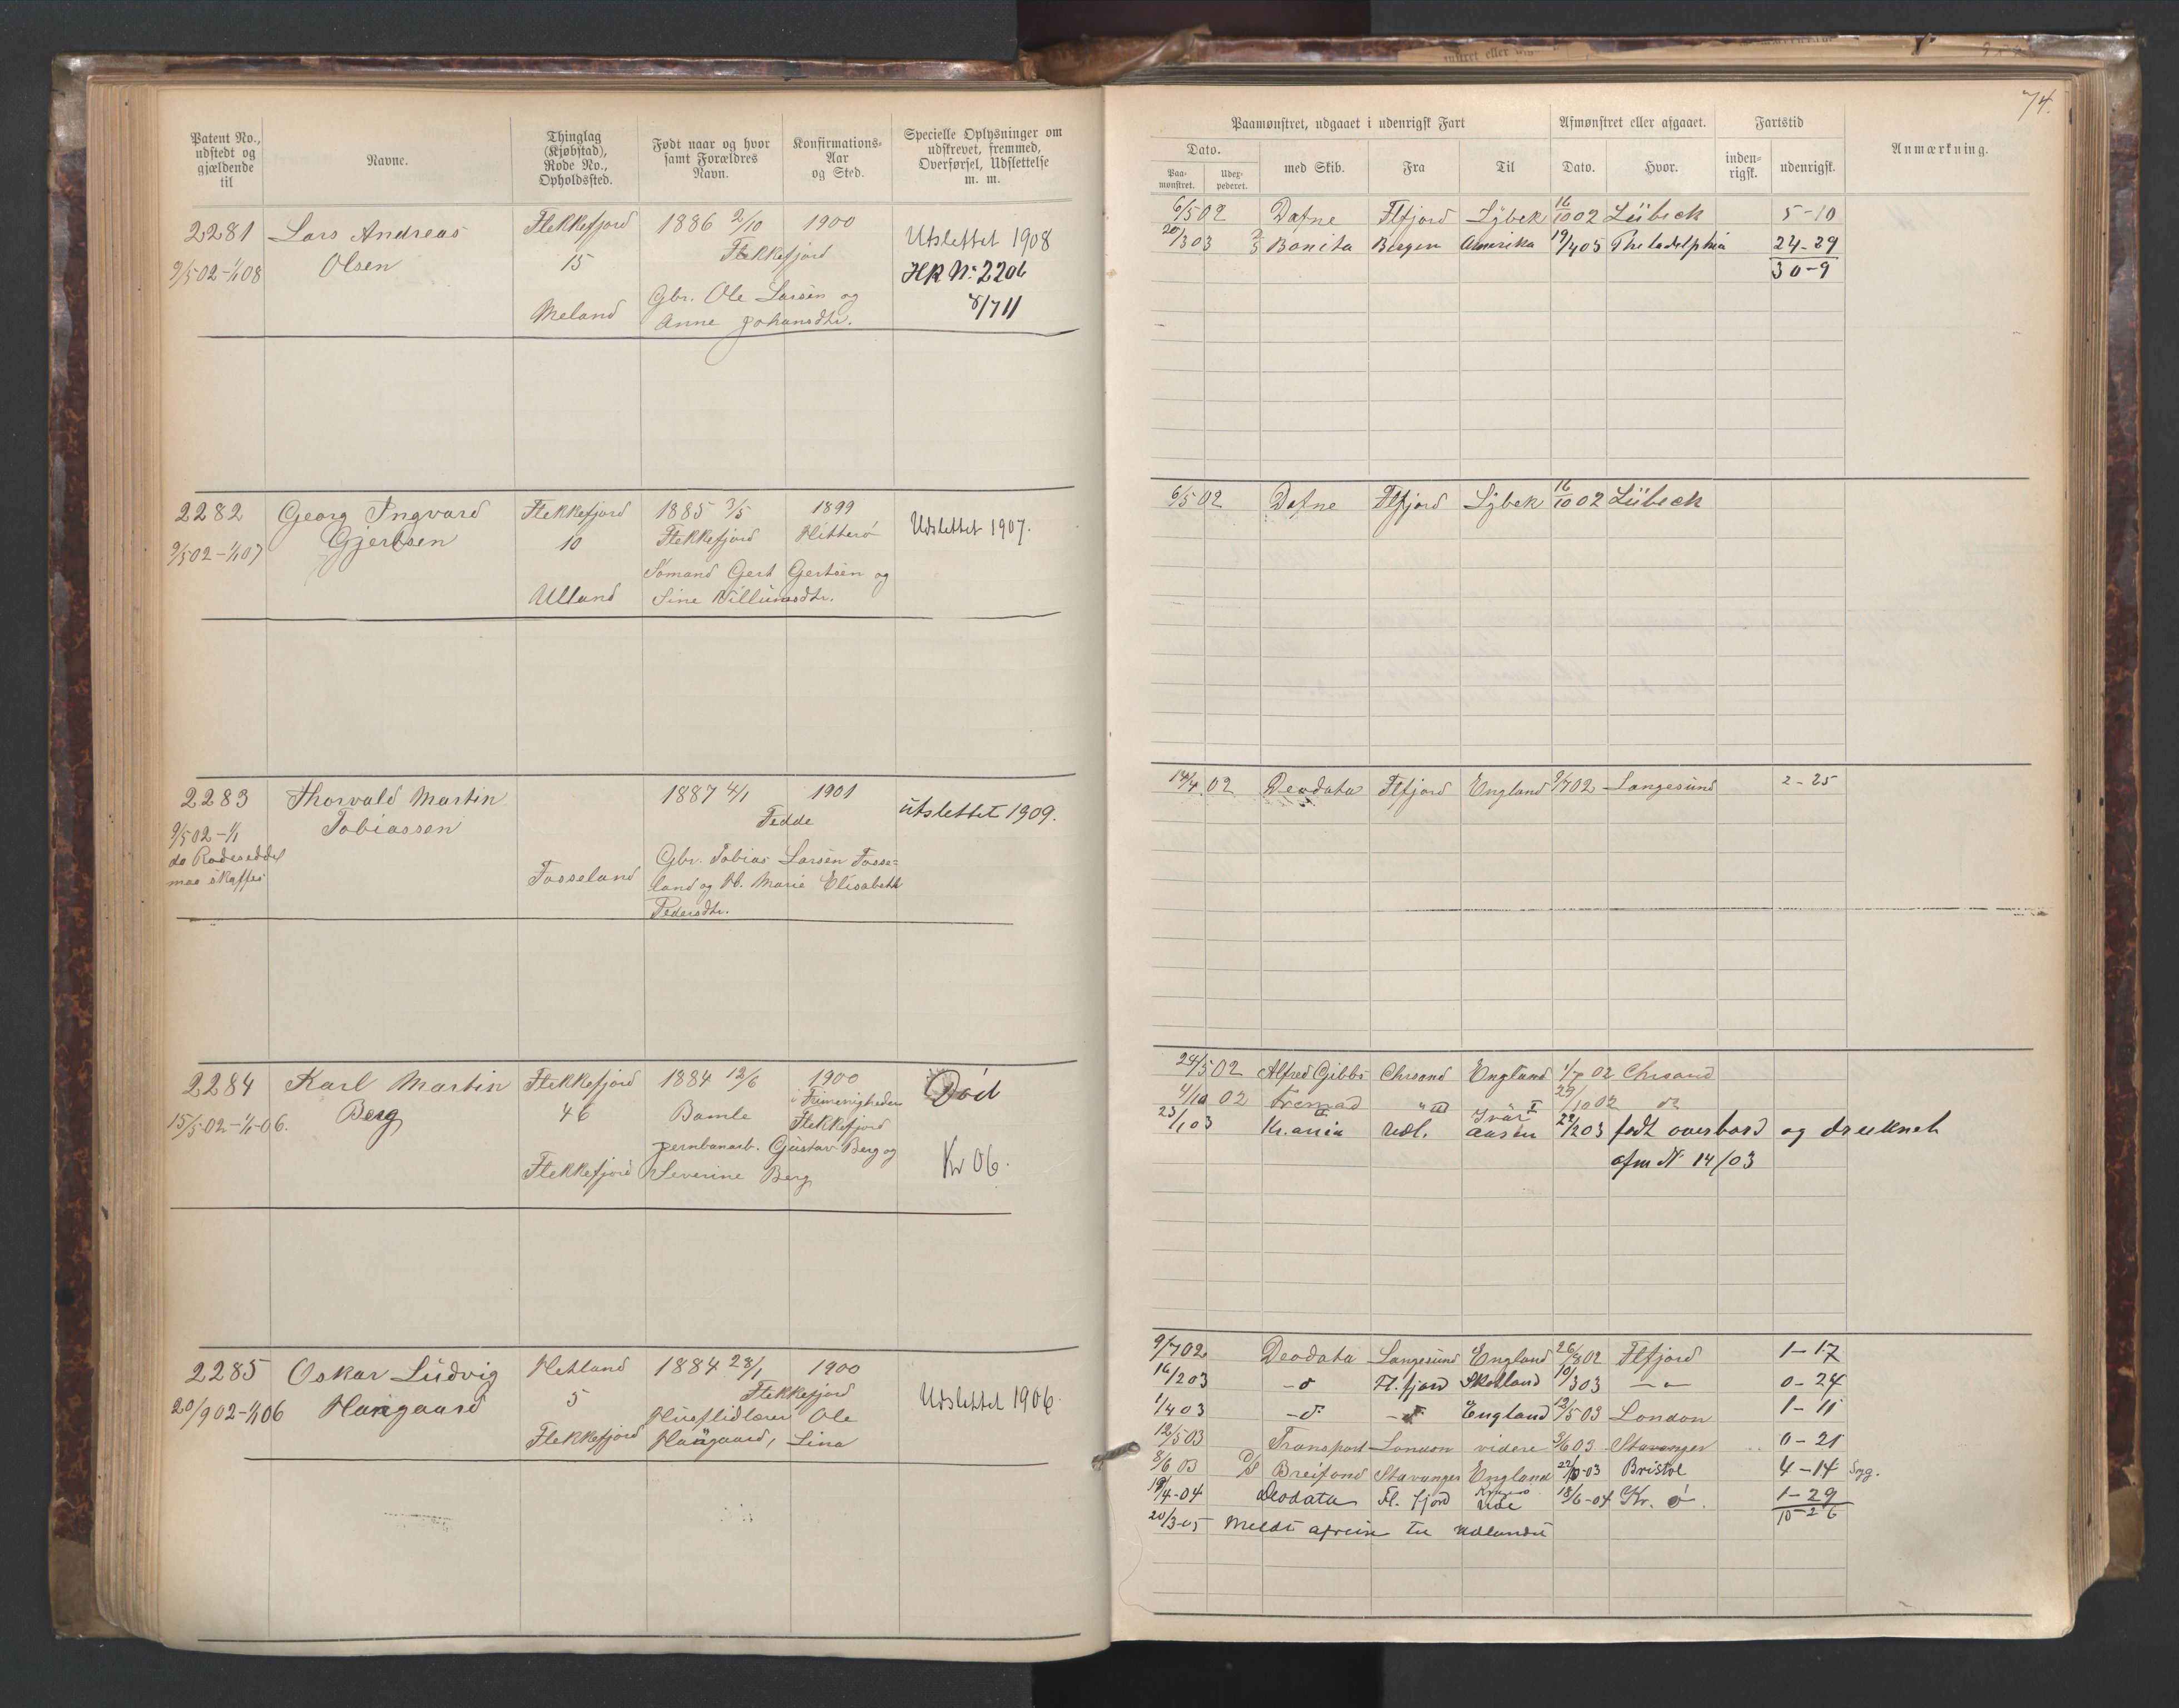 74.
Patent No., udstedt og gjældende til
Navne.
Thinglag (Kjøbstad), Rode No., Opholdssted.
Født naar og hvor samt Forældres Navn.
Konfirmations-Aar og Sted.
Specielle Oplysninger om udskrevet, fremmed, Overførsel, Udslettelse m. m.
Paamønstret, udgaaet i udenrigsk Fart
Afmønstret eller afgaaet.
Fartstid
Anmærkning.
Dato.
Paa-mønstret.
med Skib.
Fra
Til
Dato.
Hvor.
inden-rigsk.
udenrigsk.
2281 Lars Andreas Flekkefjord 1886 2/10 1900 Utslettet 1908
9/5 02 – 1/1 08 Olsen 15 Flekkefjord HR No. 2206
Meland Gbr. Ole Larsen og
Anne Johansdtr.
6/5 02 Dafne Flfjord Lybek 16/10 02 Lübeck 5-10
20/3 03 Bonita Bergen Amerika 19/4 05 Philadelphia 24-29
30-9
2282 Georg Ingvard Flekkefjord 1885 3/5 1899 Udslettet 1907.
9/5 02 – 1/1 07 Gjertsen 10 Flekkefjord Hitterø
Sømand Gert Gertsen og
Ulland Sine Villumsdtr.
6/5 02 Dafne Flfjord Lybek 16/10 02 Lübeck
2283 Thorvald Martin 1887 4/1 1901 utslettet 1909.
9/5 02 – 1/1 Tobiassen Fedde
do Rodeseddel
maa skaffes
Gbr. Tobias Larsen Fosse=
Fosseland land og H. Marie Elisabeth
Pedersdtr.
14/4 02 Deodata Flfjord England 9/7 02 Langesund 2-25
2284 Karl Martin Flekkefjord 1884 12/6 1900 Død
15/5 02 – 1/1 – 06. Berg 46 Bamle i Frimenigheden
Flekkefjord
Jernbanarb. Gustav Berg og
Flekkefjord Severine Berg Kr 06.
24/5 02 Alfred Gibbs Chrsand England 1/7 02 Chrsand
4/10 02 Fremad 29/10 02 do
23/1 03 Kr.ania Udl. Ivar Aasen 22/2 03 fadt overbord og druknet
afm No 14/03
2285 Oskar Ludvig Hetland 1884 28/1 1900 Udslettet 1906.
20/9 02 – 1/1 06 Haugaard 5 Flekkefjord
Husflidlærer Ole
Flekkefjord Haugaard, Lina
9/7 02 Deodata Langesund England 26/8 02 Flfjord 1-17
16/2 03 – d Fl.fjord Skotland 10/3 03 – " – 0-24
1/4 03 – d – – d England 12/5 03 London 1-11
12/5 03 Transport London videre 3/6 03 Stavanger 0-21
8/6 03 D/S Breifond Stavanger England 22/10-03 Bristol 4-14 Syg.
19/4-04 Deodata Fl. fjord Ude 18/6-04 Kr. ø. 1-29
20/3-05 Meldt afreise til Udlandet 10-26